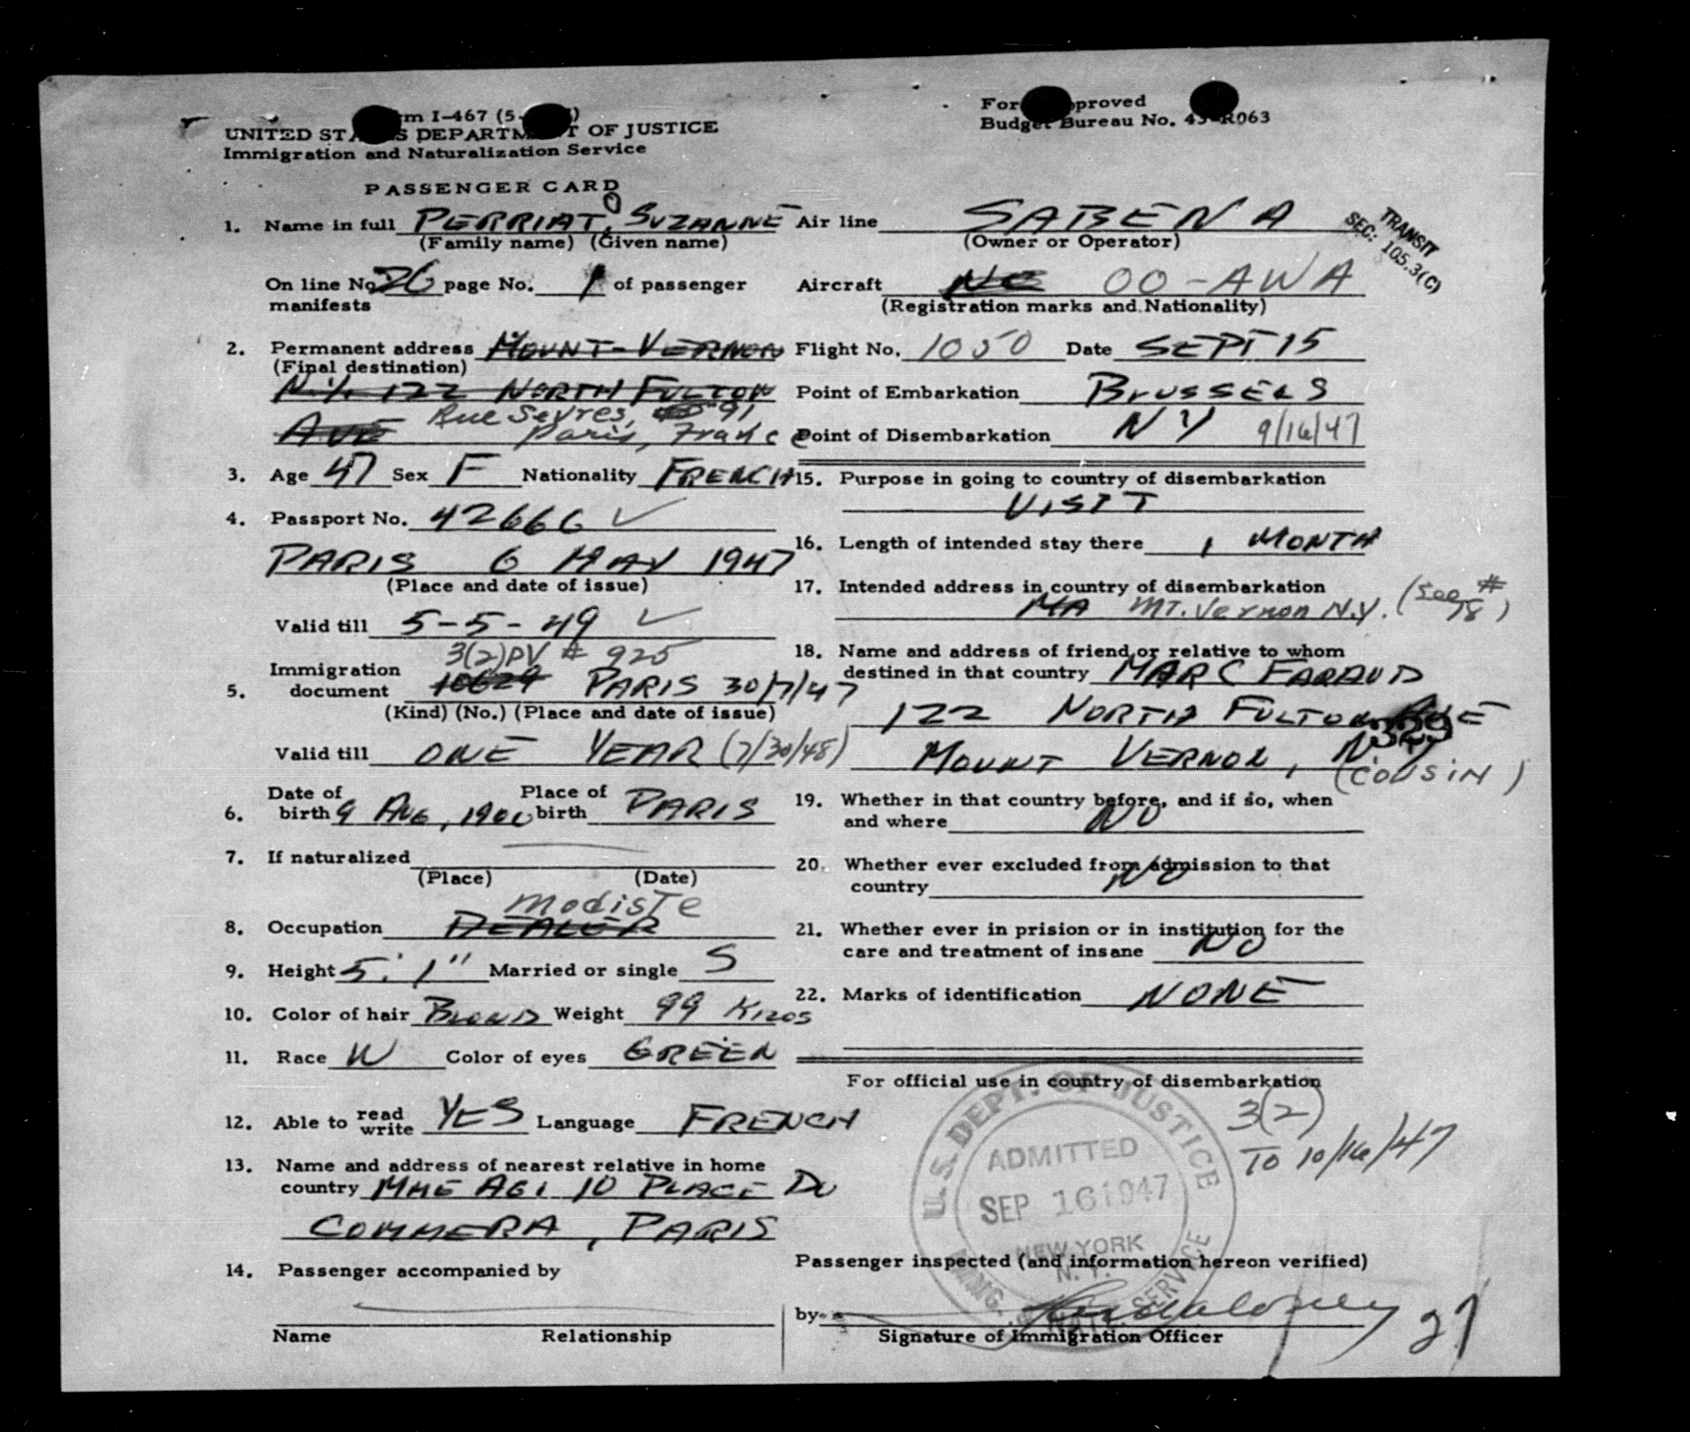 Form I-467 (5-
UNITED STATES DEPARTMENT OF JUSTICE
Immigration and Naturalization Service
PASSENGER CARD
1. Name in full PERRIAT, SUZANNE
(Family name) (Given name)
On line No. 26 page No. 1 of passenger
manifests
2. Permanent address MOUNT-VERNON
(Final destination)
N.Y. 122 NORTH FULTON
AVE Rue Sevres, 91
Paris, France
3. Age 47 Sex F Nationality FRENCH
4. Passport No. 42666 ✓
PARIS 6 MAY 1947
(Place and date of issue)
Valid till 5-5-49 ✓
3(2)PV # 925
Immigration
5. document 10629 PARIS 30/7/47
(Kind) (No.) (Place and date of issue)
Valid till ONE YEAR (7/30/48)
6. Date of birth 9 AUG, 1900 Place of birth PARIS
7. If naturalized
(Place) (Date)
modiste
8. Occupation DEALER
9. Height 5' 1" Married or single S
10. Color of hair BLOND Weight 99 KILOS
11. Race W Color of eyes GREEN
12. Able to read write YES Language FRENCH
13. Name and address of nearest relative in home
country MME AGI 10 PLACE DU
COMMERA, PARIS
14. Passenger accompanied by
Name Relationship
Form Approved
Budget Bureau No. 43-R063
Air line SABENA
(Owner or Operator)
TRANSIT
SEC: 105.3(C)
Aircraft OO-AWA
(Registration marks and Nationality)
Flight No. 1050 Date SEPT 15
Point of Embarkation BRUSSELS
Point of Disembarkation NY 9/16/47
15. Purpose in going to country of disembarkation
VISIT
16. Length of intended stay there 1 MONTH
17. Intended address in country of disembarkation
MA Mt. Vernon N.Y. (See # 18)
18. Name and address of friend or relative to whom
destined in that country MARC FARAUD
122 NORTH FULTON AVE
329
MOUNT VERNON, N.Y
(COUSIN)
19. Whether in that country before, and if so, when
and where NO
20. Whether ever excluded from admission to that
country NO
21. Whether ever in prision or in institution for the
care and treatment of insane NO
22. Marks of identification NONE
For official use in country of disembarkation
3(2)
TO 10/16/47
U.S. DEPT. OF JUSTICE
ADMITTED
SEP 16 1947
NEW YORK
N.Y.
IMMG. & NATZ. SERVICE
Passenger inspected (and information hereon verified)
by
Signature of Immigration Officer